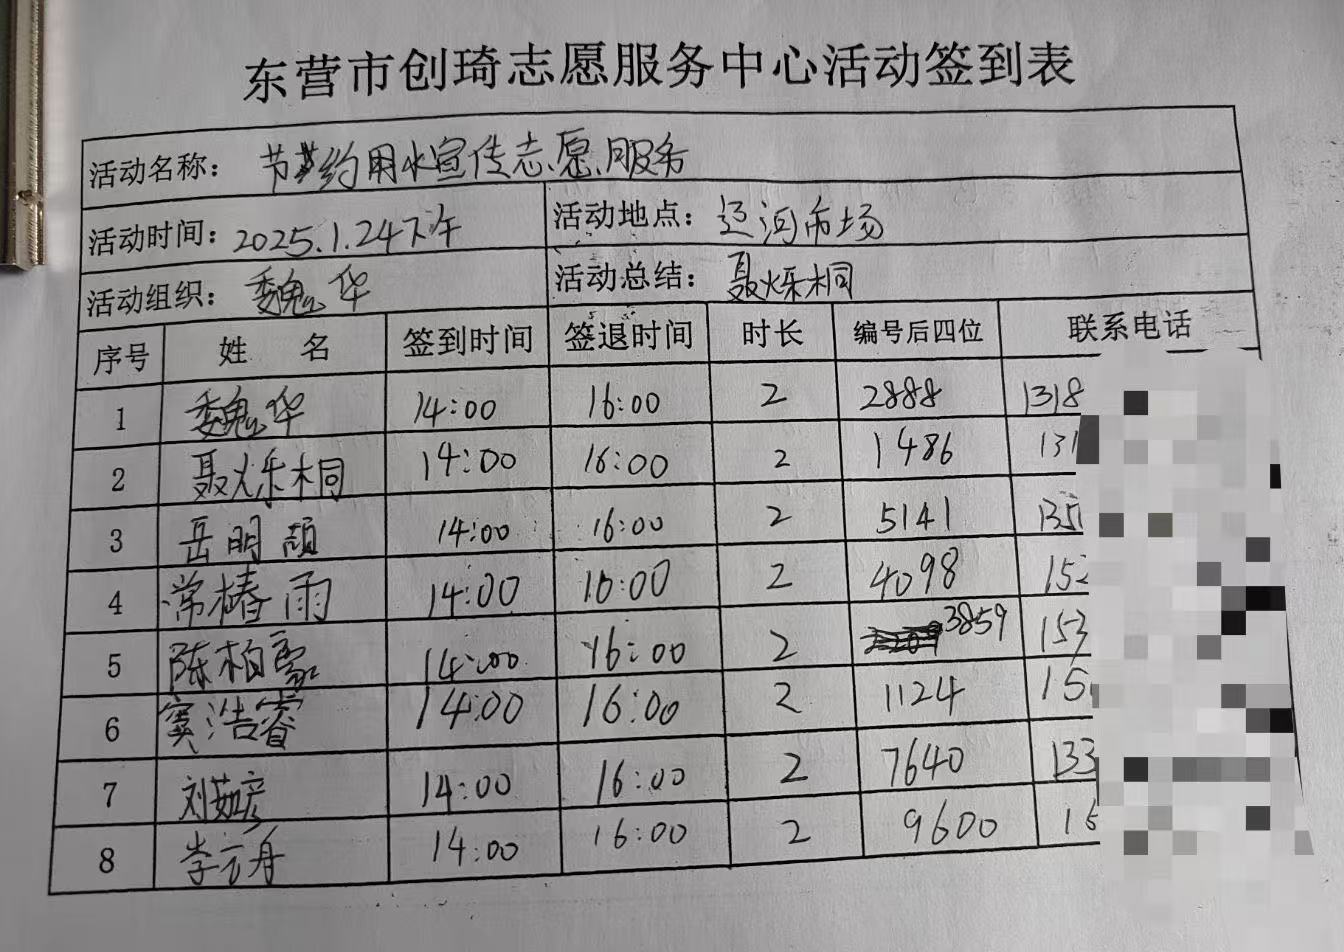 东营市创琦志愿服务中心活动签到表
活动名称: 节约用水宣传志愿服务
活动时间: 2025.1.24下午 活动地点: 运河市场
活动组织: 魏华 活动总结: 聂烁桐
序号 姓 名 签到时间 签退时间 时长 编号后四位 联系电话
1 魏华 14:00 16:00 2 2888 1318
2 聂烁桐 14:00 16:00 2 1486 131
3 岳明颉 14:00 16:00 2 5141 1351
4 常椿雨 14:00 16:00 2 4098 152
5 陈柏豪 14:00 16:00 2 3859 153
6 窦浩睿 14:00 16:00 2 1124 15
7 刘茹彦 14:00 16:00 2 7640 133
8 李方舟 14:00 16:00 2 9600 15